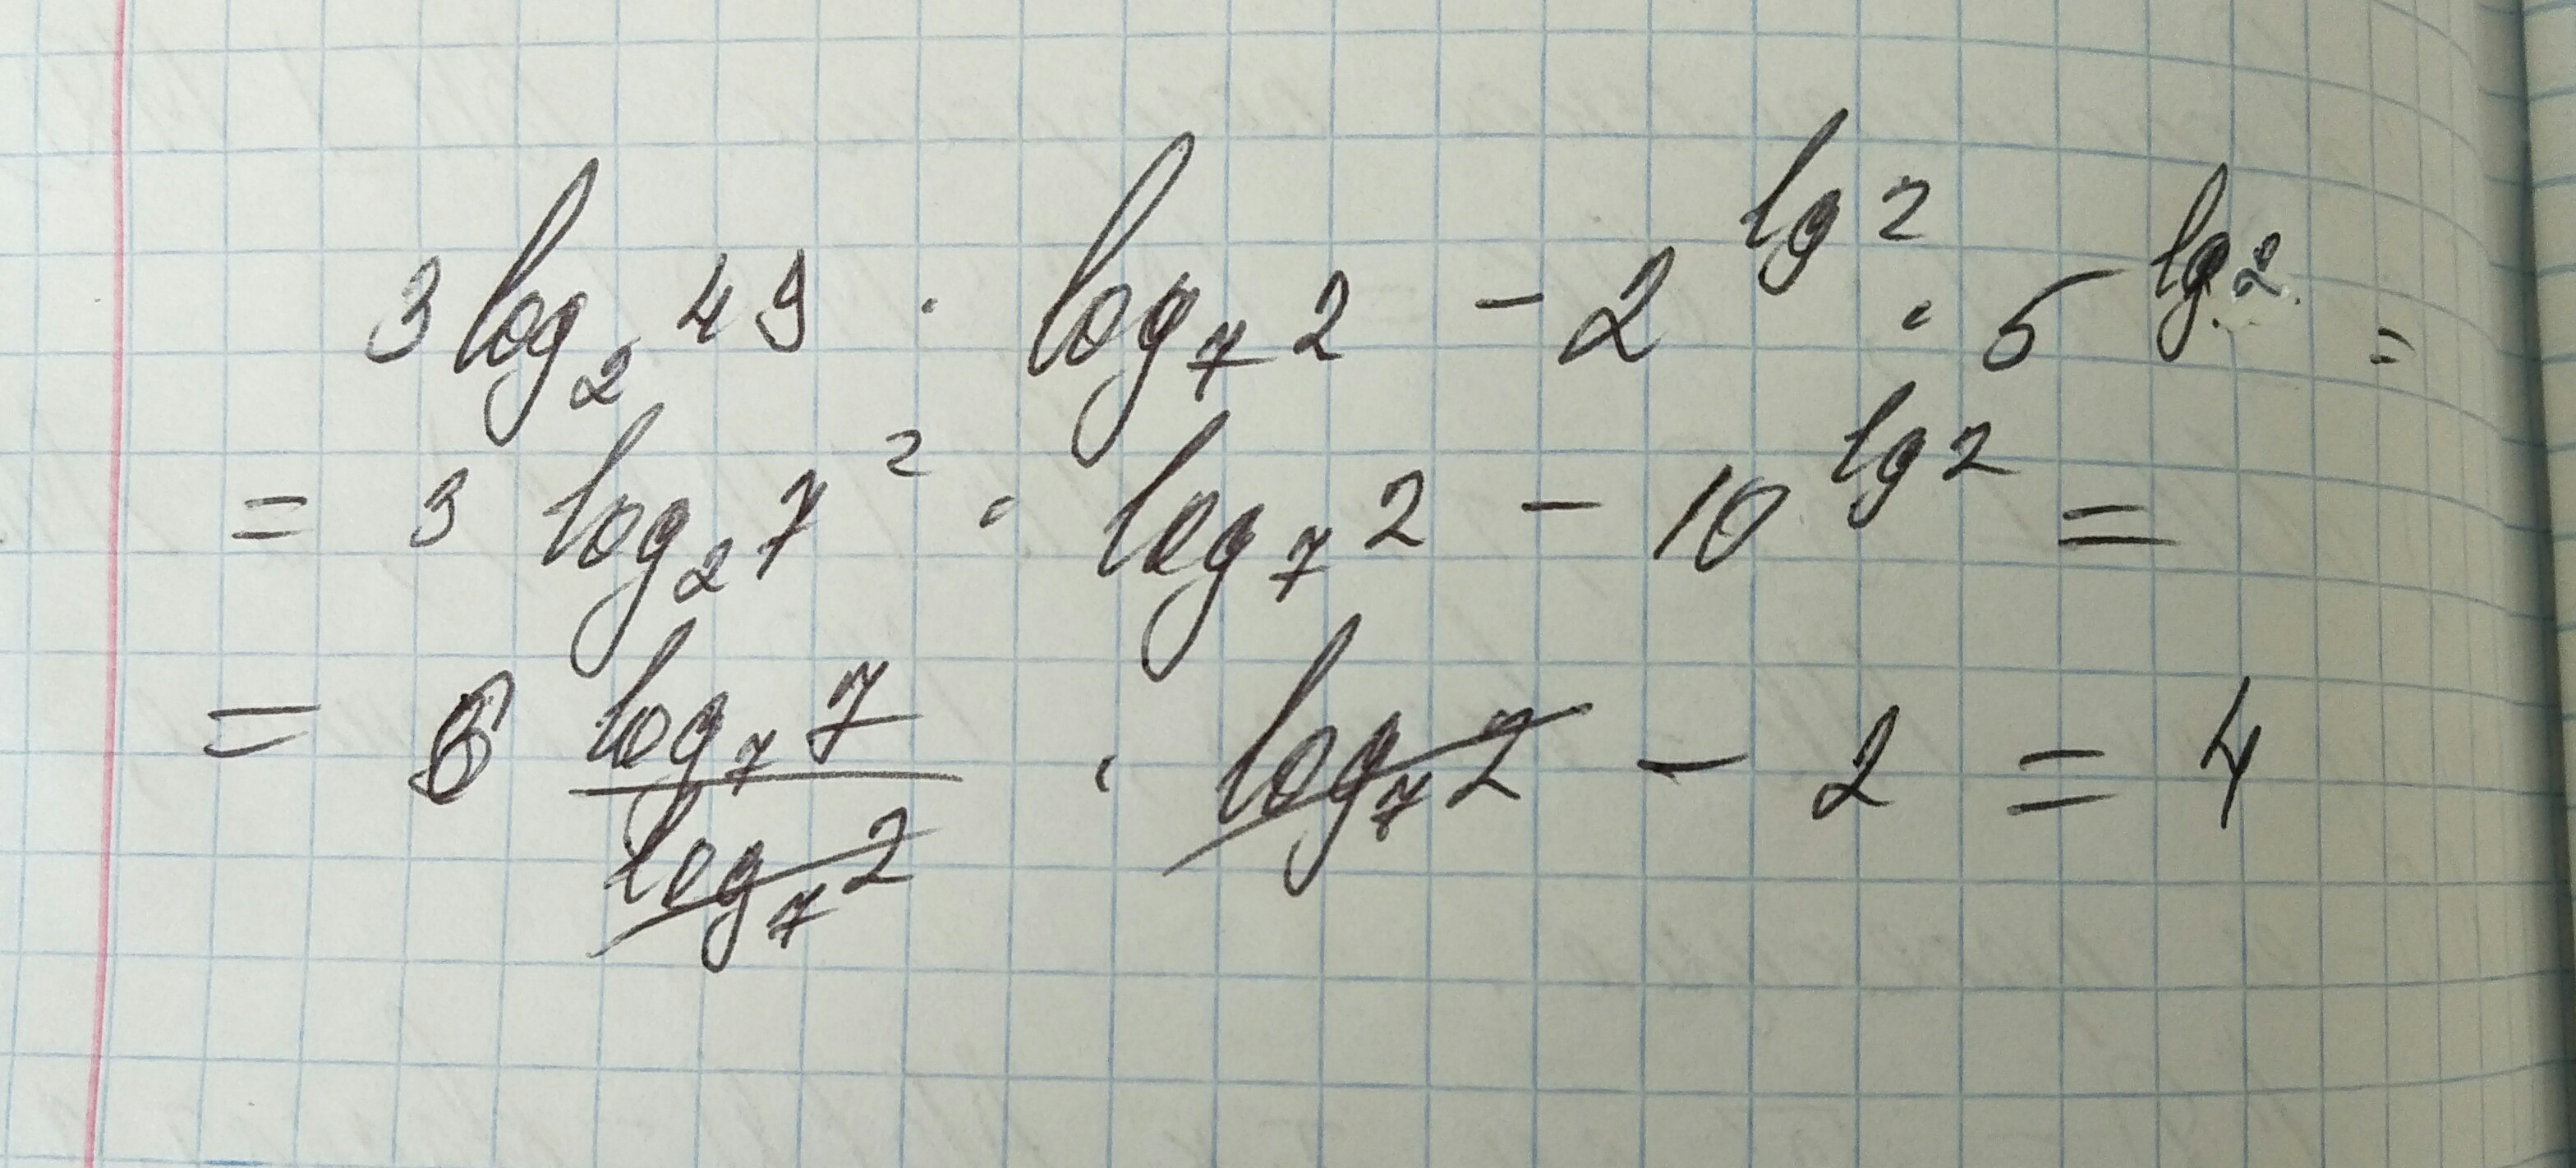 3 log₂ 49 · log₇ 2 - 2^(lg 2) · 5^(lg 2) =
= 3 log₂ 7² · log₇ 2 - 10^(lg 2) =
= 6 (log₇ 7)/(log₇ 2) · log₇ 2 - 2 = 4